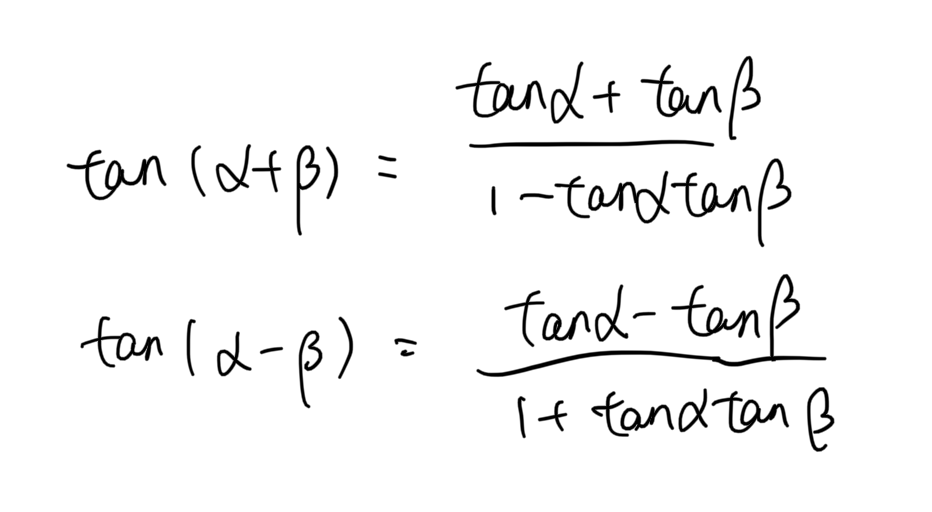 tan(α+β) = (tanα + tanβ)/(1 - tanα tanβ)
tan(α-β) = (tanα - tanβ)/(1 + tanα tanβ)